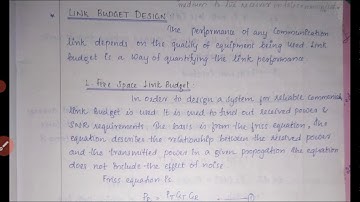 medium to the receiver in
LINK BUDGET DESIGN
The performance of any communication
link depends on the quality of equipment being used link
budget is a way of quantifying the link performance.
1. Free Space Link Budget:
In order to design a system for reliable
link budget is used. It is used to find out received power &
SNR requirements. The basis is from the friss equation, this
equation describes the relationship between the received power
and the transmitted power in a given propagation the equation
does not include the effect of noise.
Friss equation Pr
Pr = PT GT GR